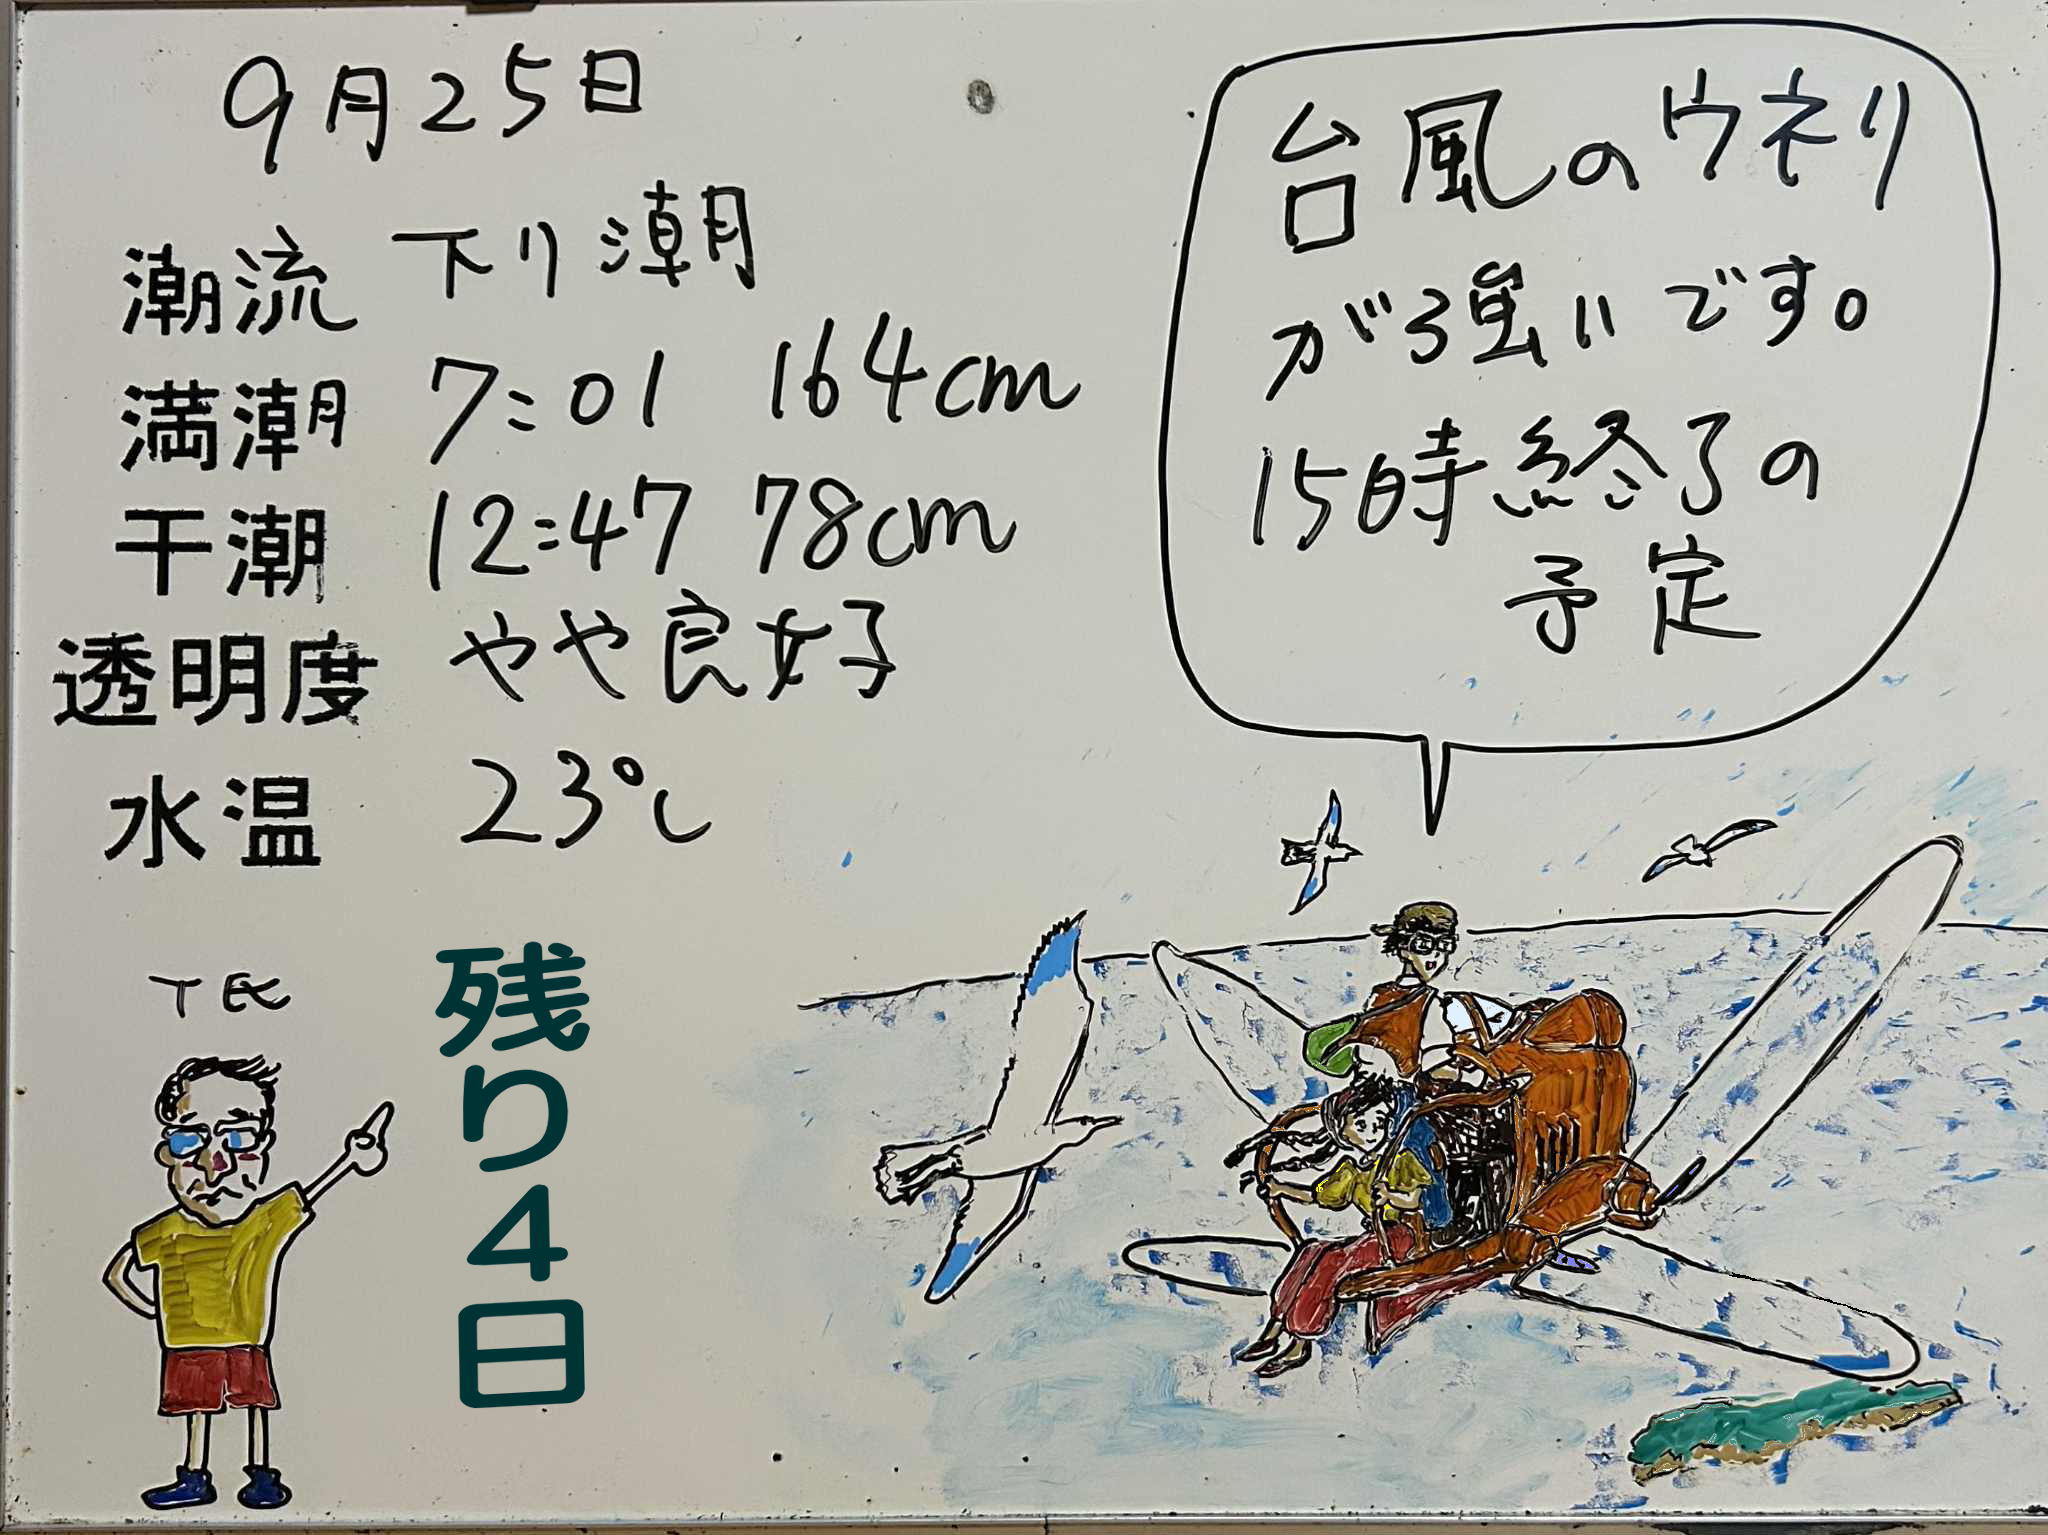 9月25日
潮流 下り潮
満潮 7:01 164cm
干潮 12:47 78cm
透明度 やや良好
水温 23℃
T氏
残り4日
台風のウネリ
が強いです。
15時終了の
予定